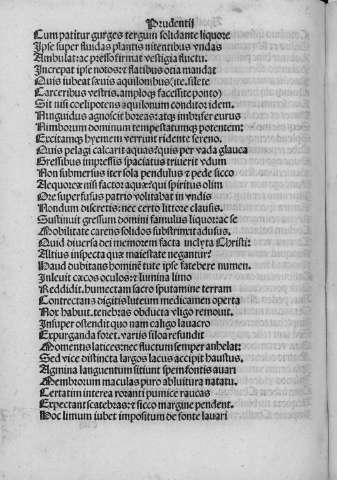 Prudentij
Cum patitur gurges tergum solidante liquore
Ipse super fluidas plantis nitentibus vndas
Ambulat: ac presso firmat vestigia fluctu.
Increpat ipse notos: et flatibus otia mandat
Quis iubeat sæuis aquilonibus (ite, silete
Carceribus vestris. amploq; facessite ponto)
Sit nisi cœlipotens aquilonum conditor idem.
Ninguidus agnoscit boreas: atq; imbrifer eurus
Nimborum dominum tempestatumq; potentem:
Excitamq; hyemem verrunt ridente sereno.
Quis pelagi calcarit aquas: quis per vada glauca
Gressibus impressis spaciatus triuerit vdum
Non submersus iter sola pendulus et pede sicco
Aequoreæ nisi factor aquæ: qui spiritus olim
Ore superfusus patrio volitabat in vndis
Nondum discretis: nec certo littore clausis.
Sustinuit gressum domini famulus liquor: ac se
Mobilitate carens solidos substrinxit adusus.
Quid diuersa dei memorem facta inclyta Christi:
Altius inspecta quæ maiestate negantur?
Haud dubitans homine tute ipse fatebere numen.
Inleuit cæcos oculos: et lumina limo
Reddidit. humectam sacro sputamine terram
Contrectans digitis luteum medicamen operta
Nox habuit. tenebras obducta vligo remouit.
Insuper ostendit quo nam caligo lauacro
Expurganda foret. varijs siloa refundit
Momentis latices: nec fluctum semper anhelat:
Sed vice distincta largos lacus accipit haustus.
Agmina languentum sitiunt spem fontis auari
Membrorum maculas puro abluitura natatu.
Certatim interea roranti pumice raucas
Expectant scatebras: et sicco margine pendent.
Hoc limum iubet impositum de fonte lauari